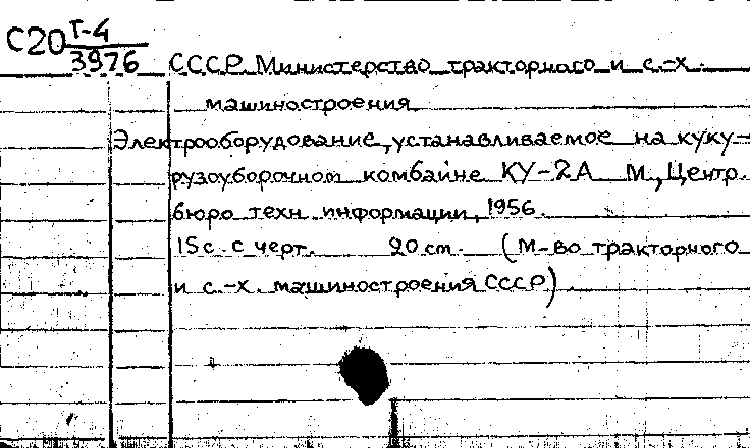 С20 Т-4
3976
СССР. Министерство тракторного и с.-х.
машиностроения
Электрооборудование, устанавливаемое на куку-
рузоуборочном комбайне КУ-2А М., Центр.
бюро техн. информации, 1956.
15 с. с черт. 20 см. (М-во тракторного
и с.-х. машиностроения СССР).